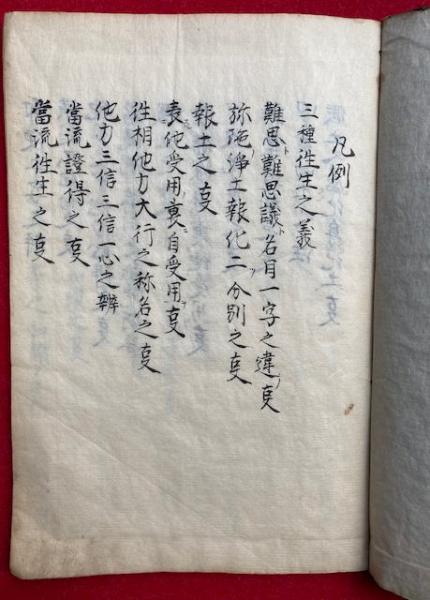 凡例
三種徃生之義
難思ト難思議ト名目一字之違ノ㕝
弥陁淨土報化二ヲ分別之㕝
報土之㕝
表他受用ニ裏自受用㕝
徃相他力大行之称名之㕝
他力三信三信一心之辨
當流證得之㕝
當流徃生之㕝